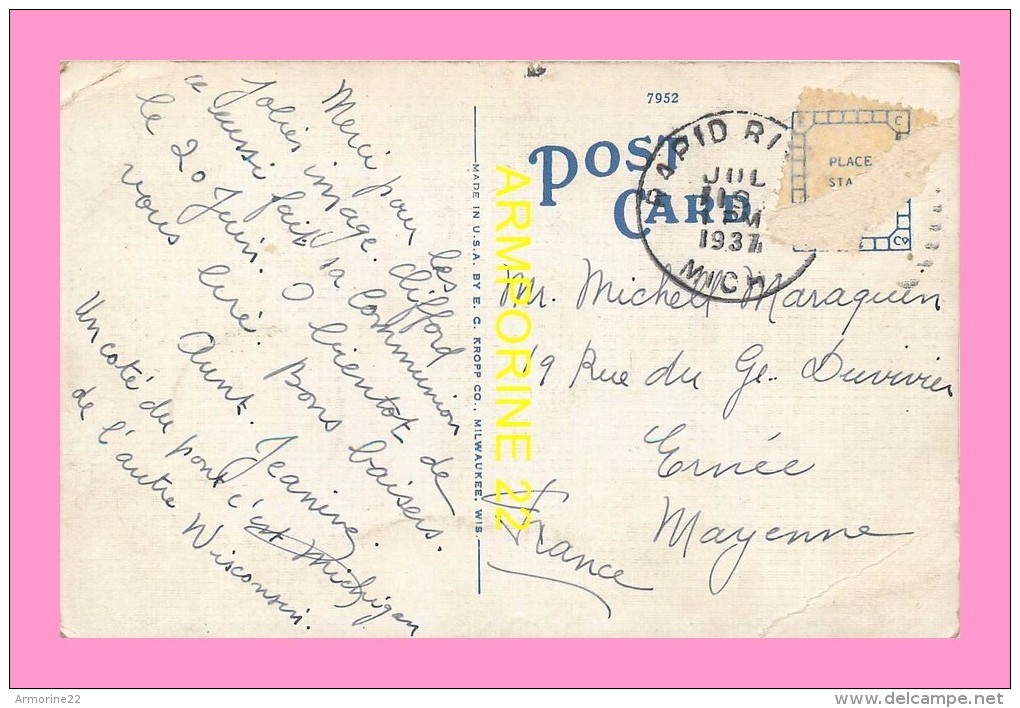 Merci pour les
Jolies image. Clifford
a aussi fait sa Communion
le 20 Juin. A bientot de
vous lire. Bons baisers.
Aunt. Jeanine.
Un coté du pont c'est Michigan
de l'autre Wisconsin.
MADE IN U.S.A. BY E. C. KROPP CO., MILWAUKEE, WIS.
ARMPORINE 22
7952
POST CARD
RAPID RI
JUL
1 PM
1937
MICH
PLACE
STA
Mr. Michell Maraquin
19 Rue du Ge. Duvivier
Ernée
Mayenne
France
Armorine22
www.delcampe.net